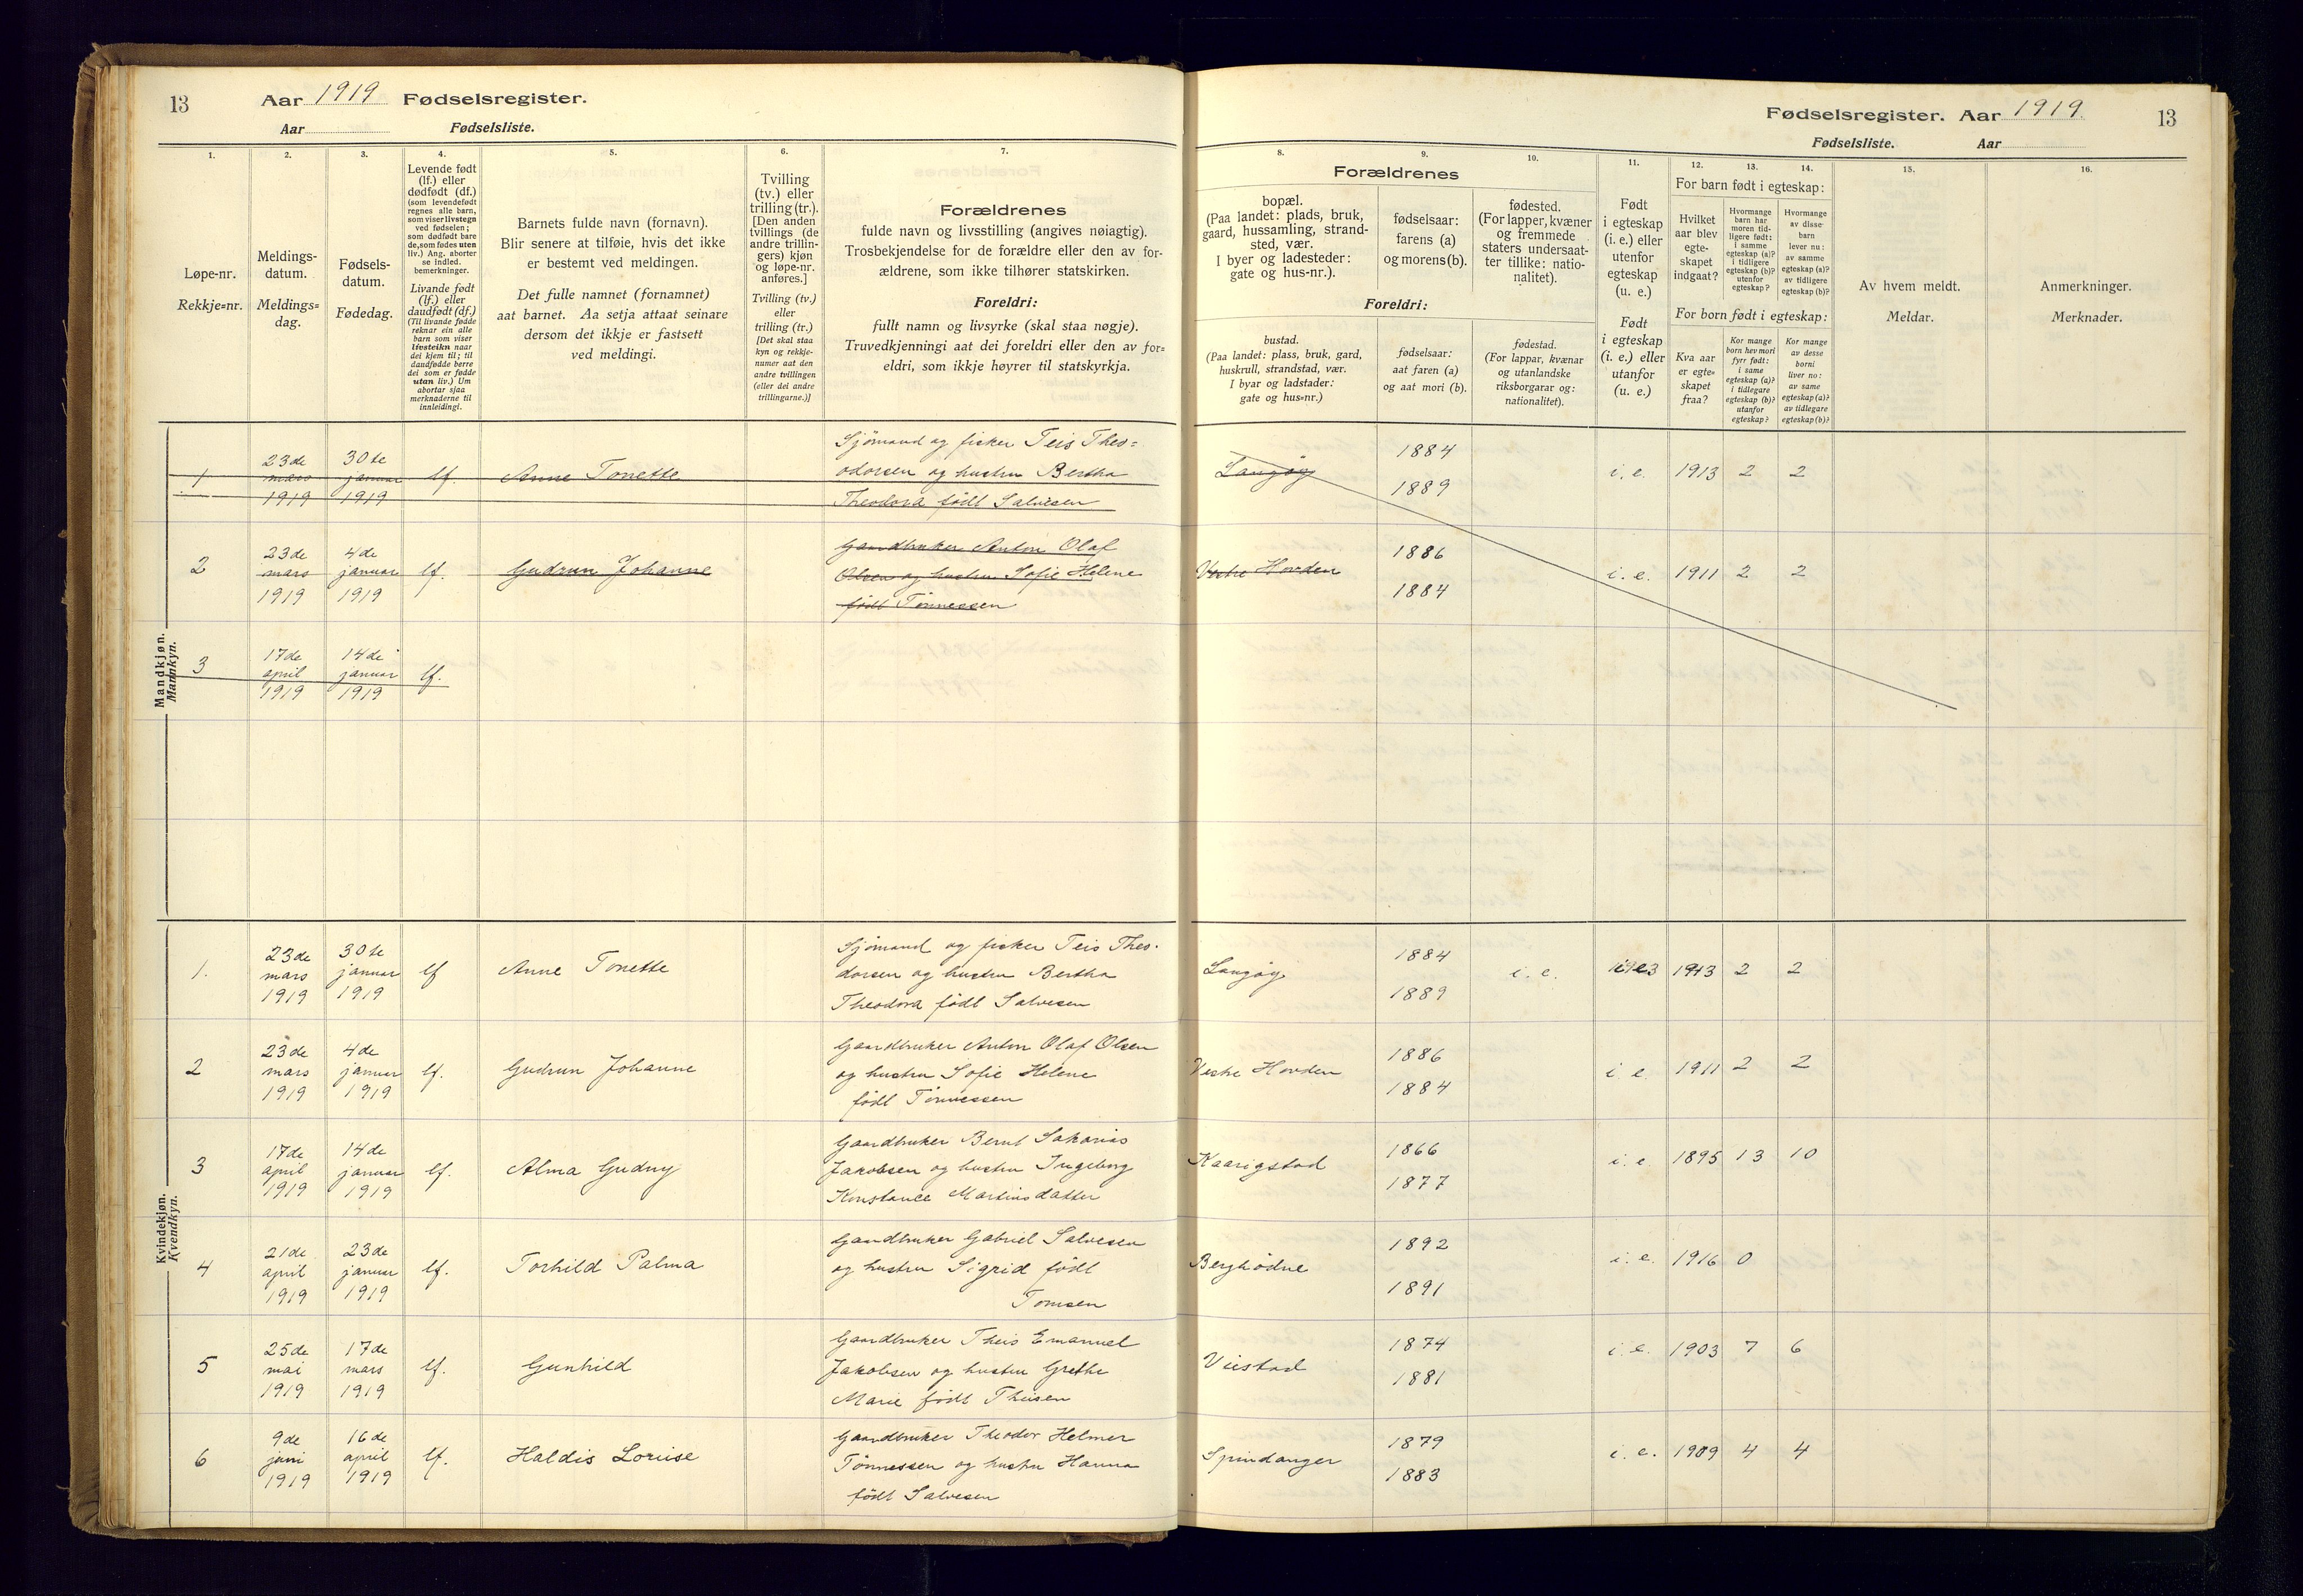 13
Aar 1919 Fødselsregister.
Aar Fødselsliste.
1.
2.
3.
4.
5.
6.
7.
Løpe-nr.
Rekkje=nr.
Meldings-
datum.
Meldings=
dag.
Fødsels-
datum.
Fødedag.
Levende født
(lf.) eller
dødfødt (df.)
(som levendefødt
regnes alle barn,
som viser livstegn
ved fødselen;
som dødfødt bare
de, som fødes uten
liv.) Ang. aborter
se indled.
bemerkninger.
Livande født
(lf.) eller
daudfødt (df.)
(Til livande fødde
reknar ein alle
barn som viser
livsteikn naar
dei kjem til; til
daudfødde berre
dei som er fødde
utan liv.) Um
abortar sjaa
merknaderne til
innleidingi.
Barnets fulde navn (fornavn).
Blir senere at tilføie, hvis det ikke
er bestemt ved meldingen.
Det fulle namnet (fornamnet)
aat barnet. Aa setja attaat seinare
dersom det ikkje er fastsett
ved meldingi.
Tvilling
(tv.) eller
trilling (tr.).
[Den anden
tvillings (de
andre trillin-
gers) kjøn
og løpe-nr.
anføres.]
Tvilling (tv.)
eller
trilling (tr.)
[Det skal staa
kyn og rekkje-
numer aat den
andre tvillingen
(eller dei andre
trillingarne.)]
Forældrenes
fulde navn og livsstilling (angives nøiagtig).
Trosbekjendelse for de forældre eller den av for-
ældrene, som ikke tilhører statskirken.
Foreldri:
fullt namn og livsyrke (skal staa nøgje).
Truvedkjenningi aat dei foreldri eller den av for=
eldri, som ikkje høyrer til statskyrkja.
Mandkjøn.
Mannkyn.
1 23de mars 1919 30te januar 1919 lf. Anne Tonette
Sjømand og fisker Teis Theo=
odorsen og hustru Bertha
Theodora født Salvesen
2 23de mars 1919 4de januar 1919 lf. Gudrun Johanne
Gaardbruker Anton Olaf
Olsen og hustru Sofie Helene
født Tønnessen
3 17de april 1919 14de januar 1919 lf.
Kvindekjøn.
Kvendkyn.
1. 23de mars 1919 30te januar 1919 lf Anne Tonette
Sjømand og fisker Teis Theo-
dorsen og hustru Bertha
Theodora født Salvesen
2 23de mars 1919 4de januar 1919 lf. Gudrun Johanne
Gaardbruker Anton Olaf Olsen
og hustru Sofie Helene
født Tønnessen
3 17de april 1919 14de januar 1919 lf. Alma Gudny
Gaardbruker Bernt Sakarias
Jakobsen og hustru Ingeborg
Konstance Martinsdatter
4 21de april 1919 23de januar 1919 lf. Torhild Palma
Gaardbruker Gabriel Salvesen
og hustru Sigrid født
Tomsen
5 25de mai 1919 17de mars 1919 lf. Gunhild
Gaardbruker Theis Emanuel
Jakobsen og hustru Grethe
Marie født Theisen
6 9de juni 1919 16de april 1919 lf. Haldis Lovise
Gaardbruker Theodor Helmer
Tønnessen og hustru Hanna
født Salvesen
Fødselsregister. Aar 1919. 13
Fødselsliste. Aar
8.
9.
10.
11.
12.
13.
14.
15.
16.
Forældrenes
bopæl.
(Paa landet: plads, bruk,
gaard, hussamling, strand-
sted, vær.
I byer og ladesteder:
gate og hus-nr.).
fødselsaar:
farens (a)
og morens (b).
fødested.
(For lapper, kvæner
og fremmede
staters undersaat-
ter tillike: natio-
nalitet).
Foreldri:
bustad.
(Paa landet: plass, bruk, gard,
huskrull, strandstad, vær.
I byar og ladstader:
gate og hus=nr.)
fødselsaar:
aat faren (a)
og aat mori (b).
fødestad.
(For lappar, kvænar
og utanlandske
riksborgarar og:
nationalitet).
Født
i egteskap
(i. e.) eller
utenfor
egteskap
(u. e.)
Født
i egteskap
(i. e.) eller
utanfor
(u. e.)
For barn født i egteskap:
Hvilket
aar blev
egte-
skapet
indgaat?
Hvormange
barn har
moren tid-
ligere født:
i samme
egteskap (a)?
i tidligere
egteskap (b)?
utenfor
egteskap?
Hvormange
av disse
barn
lever nu:
av samme
egteskap (a)?
av tidligere
egteskap (b)?
For born født i egteskap:
Kva aar
er egte=
skapet
fraa?
Kor mange
born hev mori
fyrr født:
i same
egteskap (a)?
i tidlegare
egteskap (b)?
utanfor
egteskap?
Kor mange
av desse
borni
liver no:
av same
egteskap (a)?
av tidlegare
egteskap (b)?
Av hvem meldt.
Meldar.
Anmerkninger.
Merknader.
Langøy 1884 1889 i. e. 1913 2 2
Vestre Hovden 1886 1884 i. e. 1911 2 2
Langøy 1884 1889 i. e. 1913 2 2
Vestre Hovden 1886 1884 i. e. 1911 2 2
Kaarigstad 1866 1877 i. e 1895 13 10
Berghødne 1892 1891 i. e. 1916 0
Viestad 1874 1881 i. e. 1903 7 6
Spindanger 1879 1883 i. e. 1909 4 4